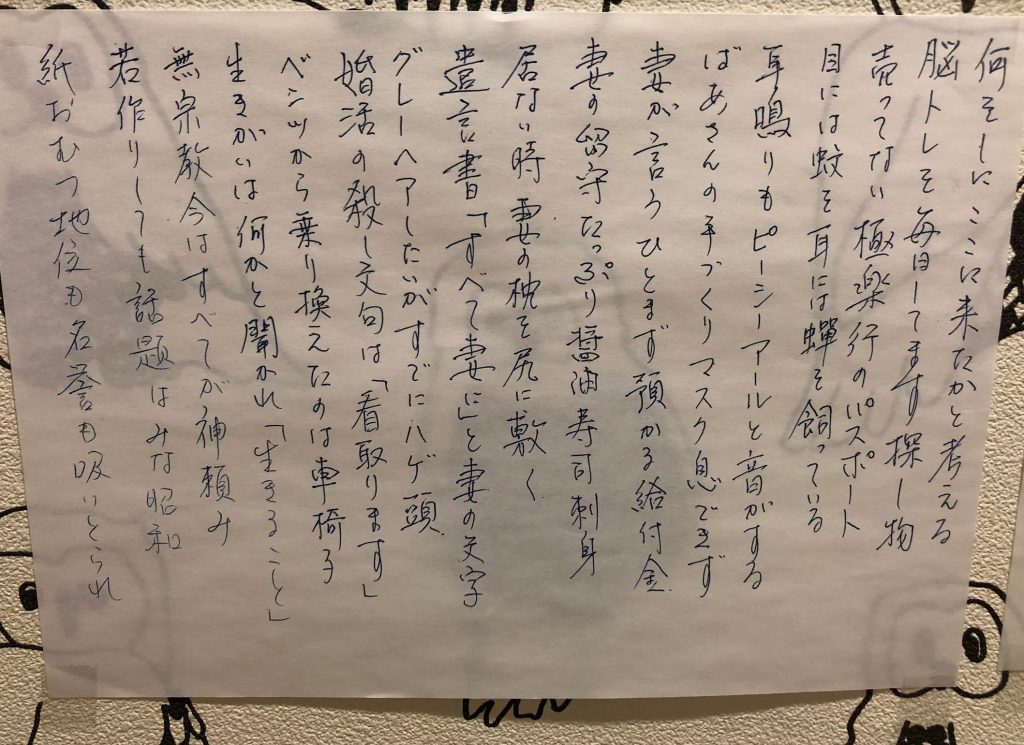 何をしにここに来たかと考える
脳トレを毎日してます探し物
売ってない極楽行のパスポート
目には蚊を耳には蝉を飼っている
耳鳴りもピーシーアールと音がする
ばあさんの手づくりマスク息できず
妻が言うひとまず預かる給付金
妻の留守たっぷり醤油寿司刺身
居ない時妻の枕を尻に敷く
遺言書「すべて妻に」と妻の文字
グレーヘアしたいがすでにハゲ頭
婚活の殺し文句は「看取ります」
ベンツから乗り換えたのは車椅子
生きがいは何かと聞かれ「生きること」
無宗教今はすべてが神頼み
若作りしても話題はみな昭和
紙おむつ地位も名誉も吸いとられ